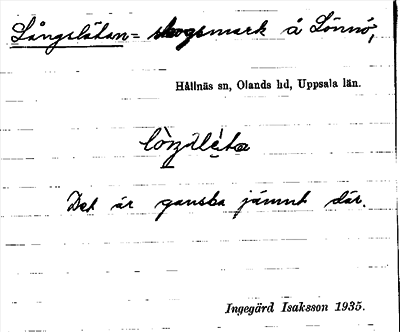 Långslätan = skogsmark å Lönnö,
Hållnäs sn, Olands hd, Uppsala län.
Det är ganska jämnt där.
Ingegärd Isaksson 1935.